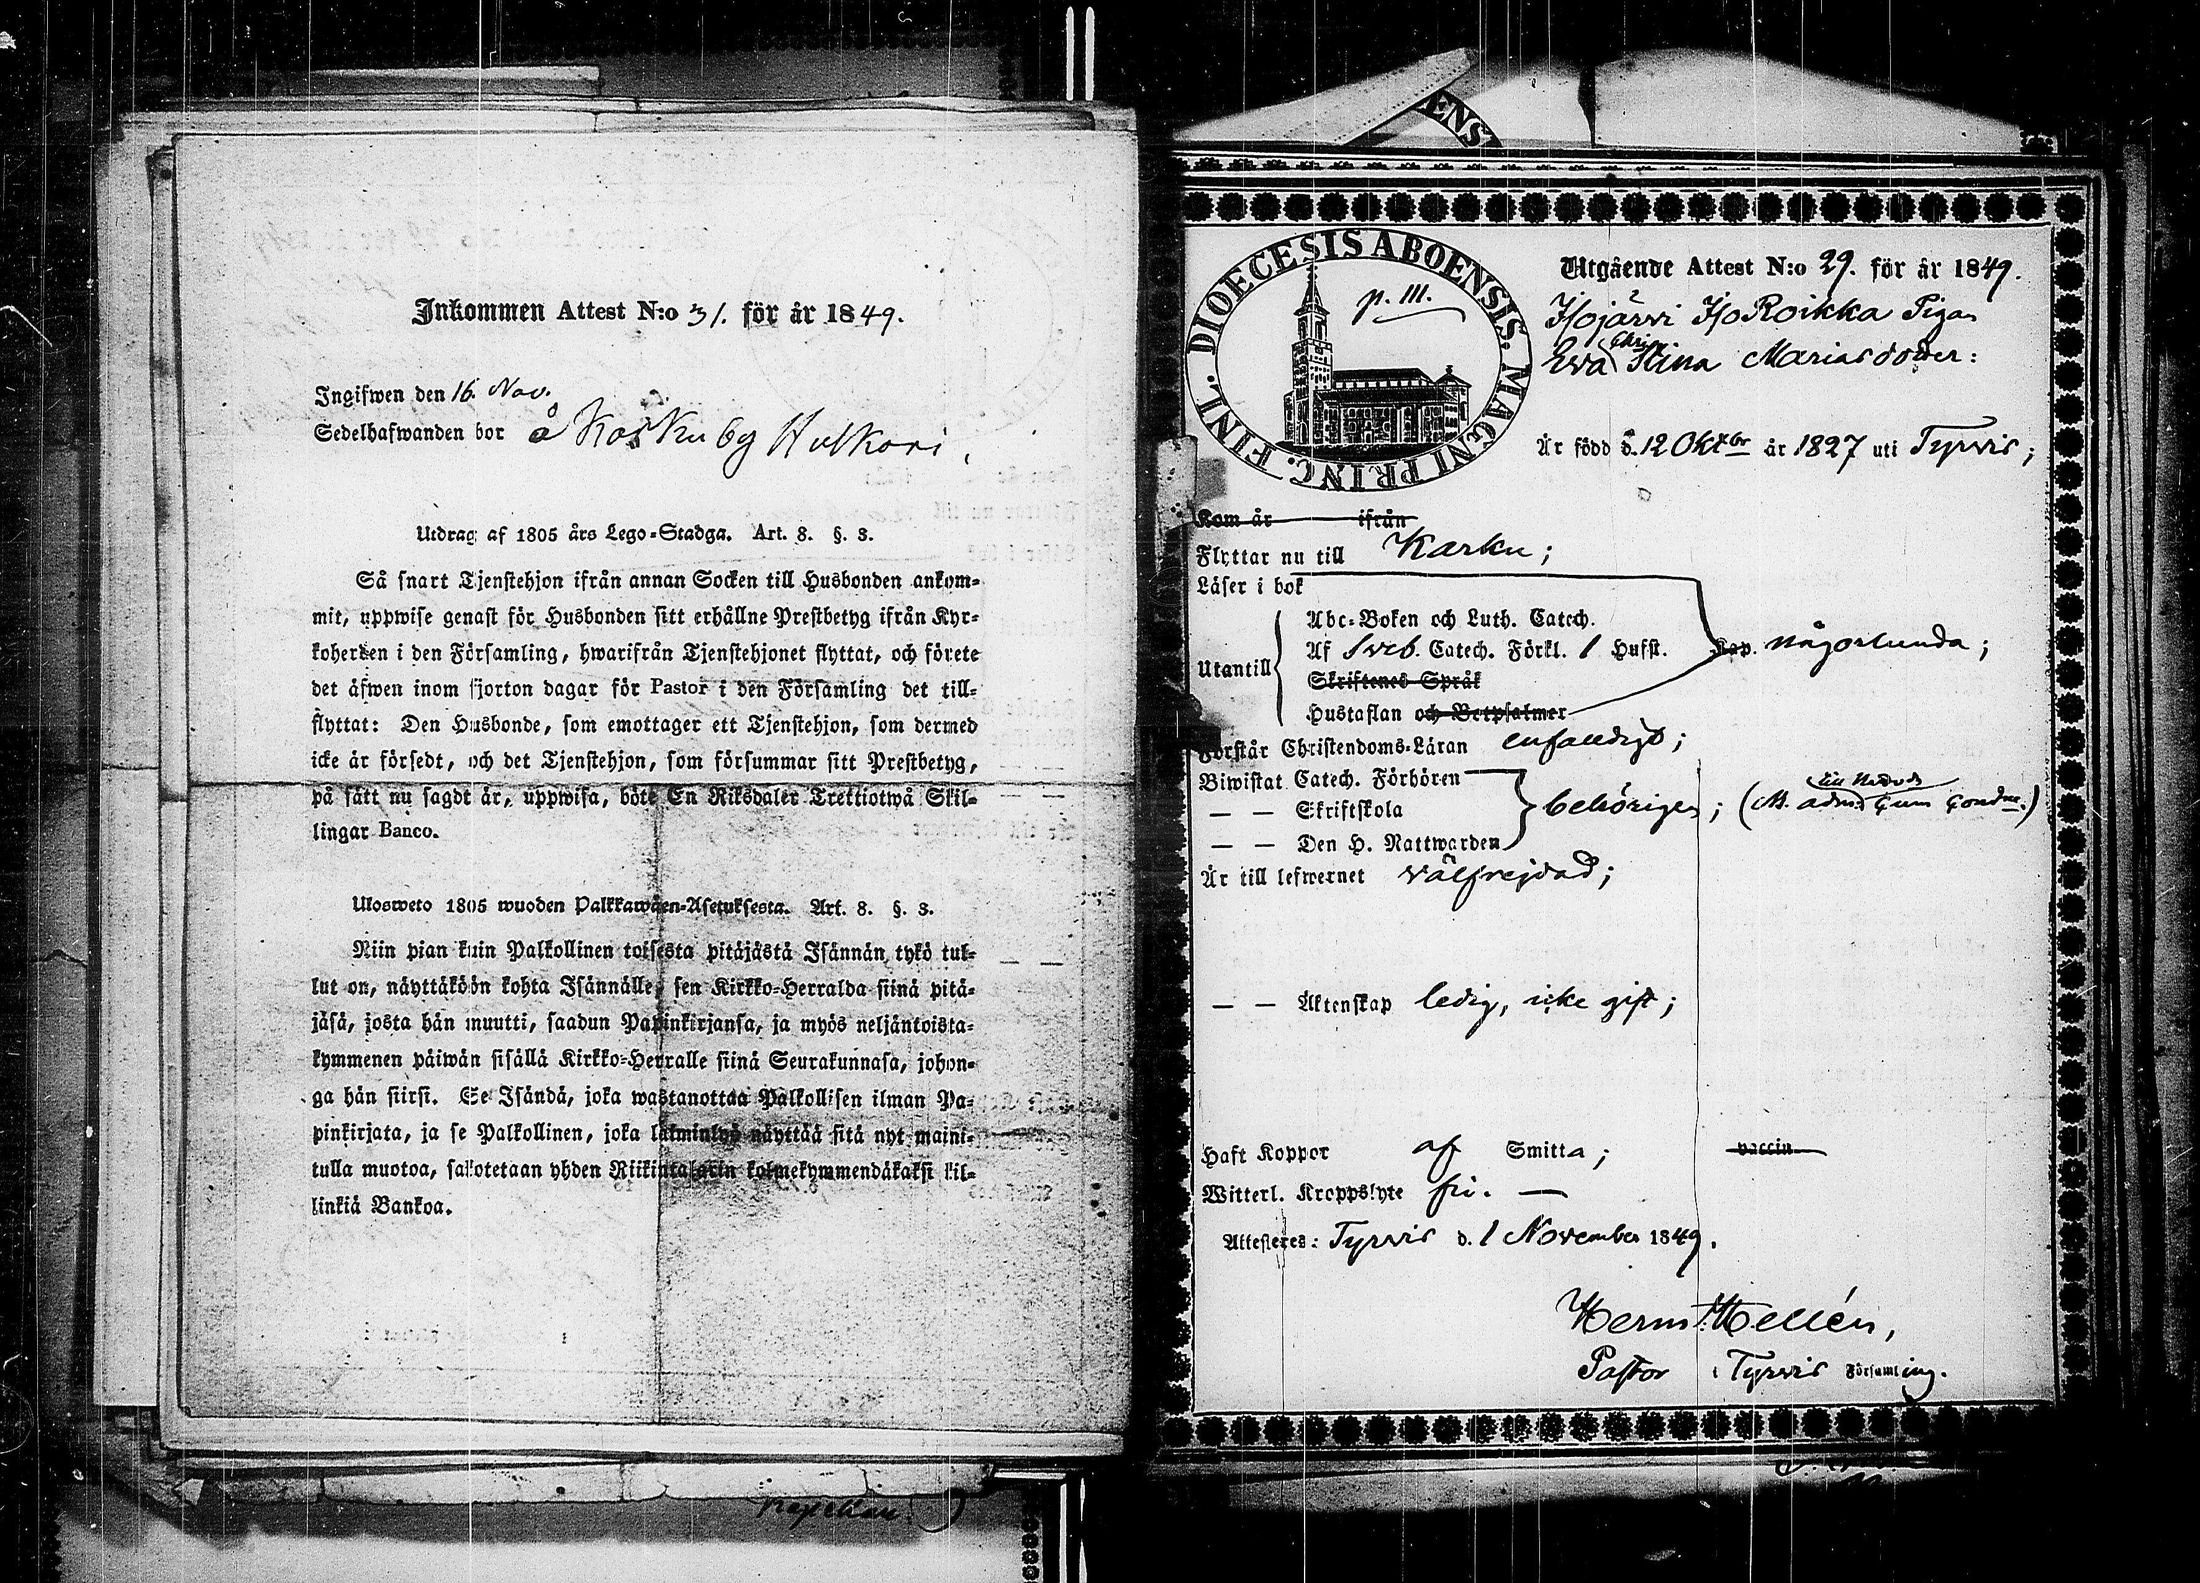 Inkommen Attest N:o 31. för år 1849.
Ingifwen den 16. Nov.
Sedelhafwanden bor å Karku by Hulkari,
Utdrag af 1805 års Lego-Stadga. Art. 8. §. 3.
Så snart Tjenstehjon ifrån annan Socken till Husbonden ankom-
mit, uppwise genast för Husbonden sitt erhållne Prestbetyg ifrån Kyr-
koherden i den Församling, hwarifrån Tjenstehjonet flyttat, och förete
det äfwen inom fjorton dagar för Pastor i den Församling det till-
flyttat: Den Husbonde, som emottager ett Tjenstehjon, som dermed
icke är försedt, och det Tjenstehjon, som försummar sitt Prestbetyg,
på sätt nu sagdt är, uppwisa, böte En Riksdaler Trettiotwå Skil-
lingar Banco.
Ulosweto 1805 wuoden Palkkawäen-Asetuksesta. Art. 8. §. 3.
Niin pian kuin Palkollinen toisesta pitäjästä Isännän tykö tul-
lut on, näyttäköön kohta Isännälle, sen Kirkko-Herralda siinä pitä-
jäsä, josta hän muutti, saadun Papinkirjansa, ja myös neljäntoista-
kymmenen päiwän sisällä Kirkko-Herralle siinä Seurakunnasa, johon-
ga hän siirsi. Se Isändä, joka wastanottaa Palkollisen ilman Pa-
pinkirjata, ja se Palkollinen, joka laiminlyö näyttää sitä nyt maini-
tulla muotoa, sakotetaan yhden Riikintalarin kolmekymmendäkaksi kil-
linkiä Bankoa.
DIOECESIS ABOENSIS. MAGNI PRINC. FINL.
p. 111.
Utgående Attest N:o 29. för år 1849.
Isojärvi IsoRoikka Pigan
Chri
Eva Stina Mariasdotter:
Är född d. 12 Oktbr år 1827 uti Tyrvis;
Kom år ifrån
Flyttar nu till Karku;
Läser i bok
Abc-Boken och Luth. Catech.
Utantill Af Sveb. Catech. Förkl. 1 Hufst. Kap. någorlunda;
Skriftenes Språk
Hustaflan och Botpsalmer
Förstår Christendoms-Läran enfaldigt;
Biwistat Catech. Förhören
— — Skriftskola behörigen; (M. adm. cum cond.)
— — Den H. Nattwarden
Är till lefwernet välfrejdad;
— — Äktenskap ledig, icke gift;
Haft Koppor af Smitta; vaccin
Witterl. Kroppslyte fri. —
Attesteres: Tyrvis d. 1 November 1849.
Herm. Hellén,
Pastor i Tyrvis Församling.